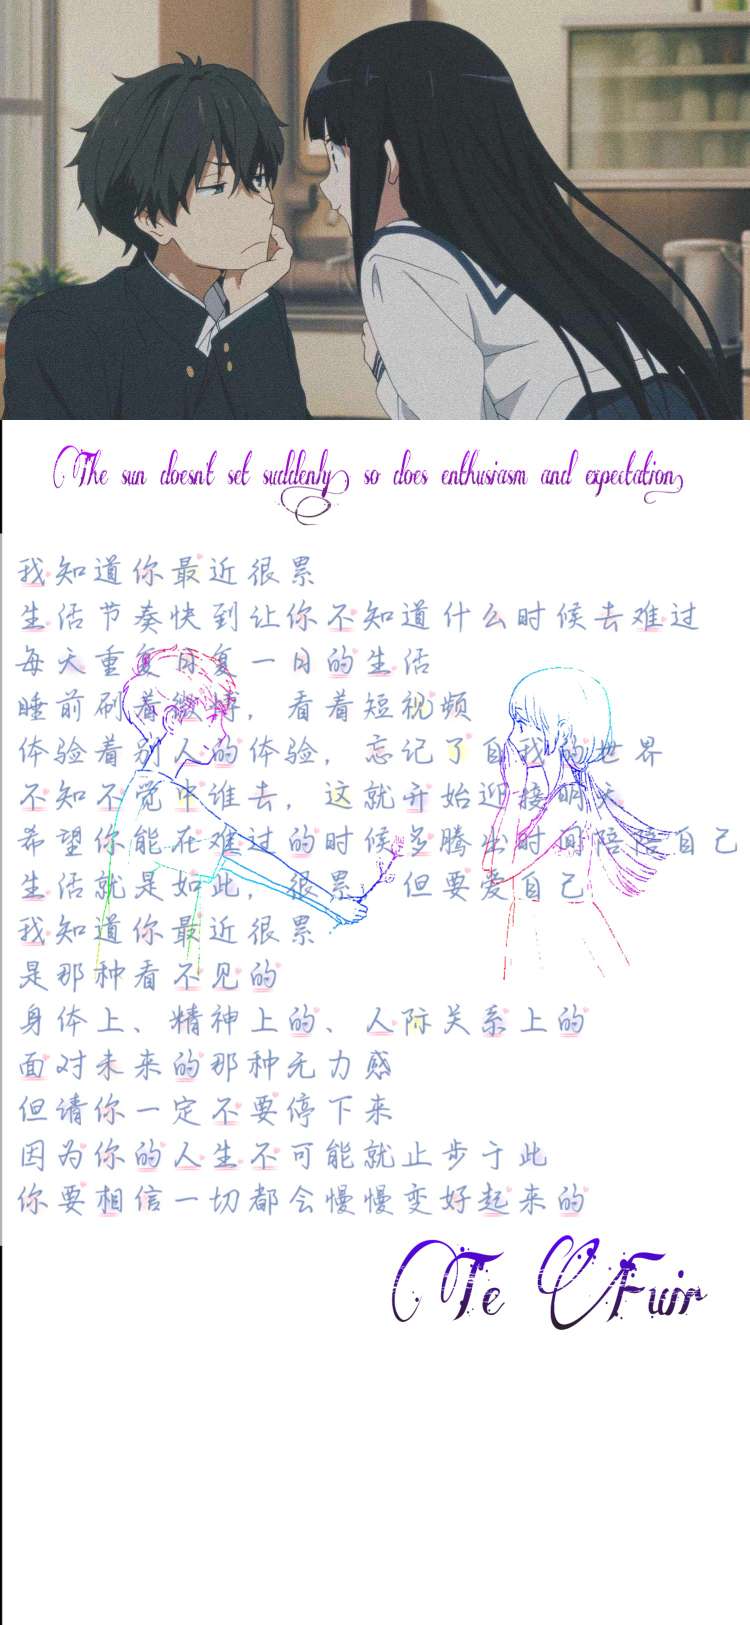 The sun doesn't set suddenly, so does enthusiasm and expectation,
我知道你最近很累
生活节奏快到让你不知道什么时候去难过
每天重复日复一日的生活
睡前刷着微博，看着短视频
体验着别人的体验，忘记了自我的世界
不知不觉中谁去，这就开始迎接明天
希望你能在难过的时候多腾出时间陪陪自己
生活就是如此，很累，但要爱自己
我知道你最近很累
是那种看不见的
身体上、精神上的、人际关系上的
面对未来的那种无力感
但请你一定不要停下来
因为你的人生不可能就止步于此
你要相信一切都会慢慢变好起来的
Te Fuir